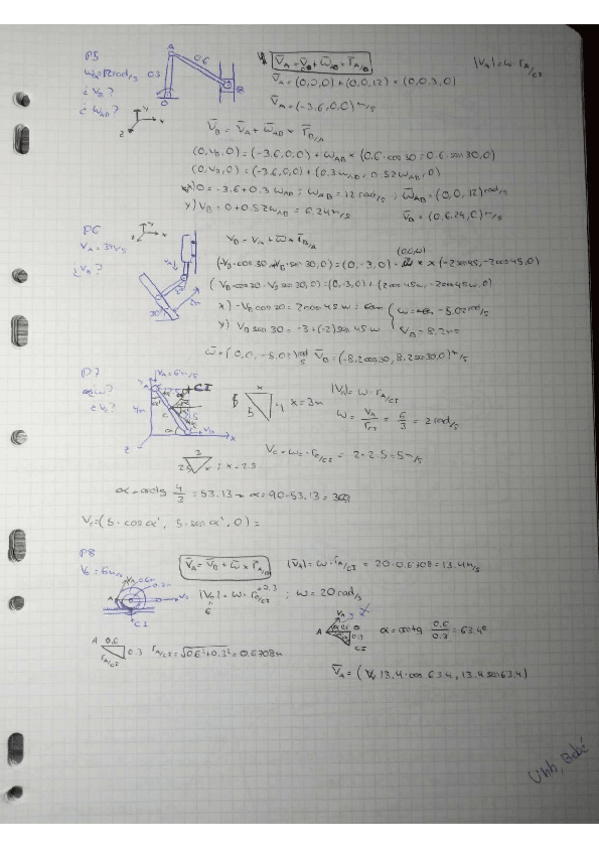 P5
ω₀=12rad/s
¿ V_B?
¿ ω_AB?
A
0.3
0.6
O
B
V̄_A = V̄_0 + ω̄_AO × r̄_A/O
|V_A| = ω · r_A/CI
V̄_A = (0,0,0) + (0,0,12) × (0,0.3,0)
V̄_A = (-3.6,0,0) m/s
V̄_B = V̄_A + ω̄_AB × r̄_B/A
(0,V_B,0) = (-3.6,0,0) + ω_AB × (0.6·cos30 - 0.6·sen30,0)
(0,V_B,0) = (-3.6,0,0) + (0.3ω_AB, 0.52ω_AB,0)
x) 0 = -3.6+0.3 ω_AB ; ω_AB = 12 rad/s ; ω̄_AB = (0,0,12) rad/s
y) V_B = 0+0.52ω_AB = 6.24m/s V̄_B = (0,6.24,0) m/s
P6
V_A = 3m/s
¿V_B?
30
2m
V_B = V_A + ω̄ × r̄_B/A
(0,0,ω)
(-V_B·cos30, V_B·sen30,0) = (0,-3,0) + × (-2sen45,-2cos45,0)
(-V_B cos30, V_B sen30,0) = (0,-3,0) + (2cos45ω, -2cos45ω,0)
x) -V_B cos30 = 2cos45ω
y) V_B sen30 = -3+(-2)sen45ω
ω = -5.02 rad/s
V_B = 8.2m/s
ω̄ = (0,0,-5.02) rad/s V̄_B = (-8.2cos30, 8.2sen30,0) m/s
P7
¿ω?
¿V_C?
V_A=6m/s
CI
4m
x = 3m
|V_A| = ω · r_A/CI
ω = V_A / r_CI = 6/3 = 2 rad/s
V_C = ω · r_C/CI = 2·2.5=5m/s
3
2.5 x ; x = 2.5
α = arctg 4/3 = 53.13 → α' = 90-53.13 = 36.9
V̄_C = (5·cosα', 5·senα', 0) =
P8
V_0 = 6m/s
V̄_A = V̄_B + ω̄ × r̄_A/B
|V̄_A| = ω · r_A/CI = 20·0.6708 = 13.4m/s
|V_0| = ω · r_0/CI 0.3 ; ω = 20 rad/s
6
CI
A 0.6
0.3
r_A/CI
r_A/CI = √0.6²+0.3² = 0.6708m
α = arctg 0.6/0.3 = 63.4º
V̄_A = (13.4·cos 63.4, 13.4sen63.4)
Uhh, Bebé